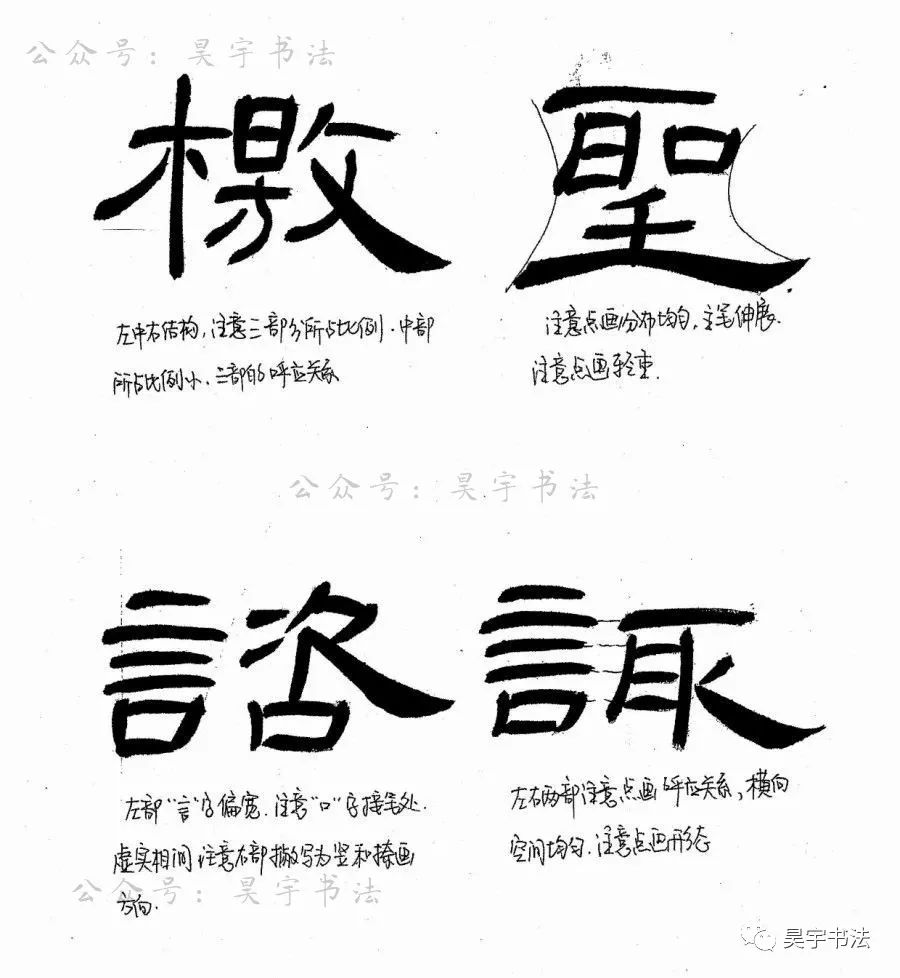 公众号：昊宇书法
檄 聖
左中右结构，注意三部分所占比例.中部
所占比例小.三部的呼应关系
注意点画分布均匀.主笔伸展.
注意点画轻重.
公众号：昊宇书法
諮 諏
左部"言"字偏宽.注意"口"字接笔处.
虚实相间,注意右部撇写为竖和捺画
方向.
左右两部注意点画呼应关系,横向
空间均匀.注意点画形态
公众号：昊宇书法
昊宇书法